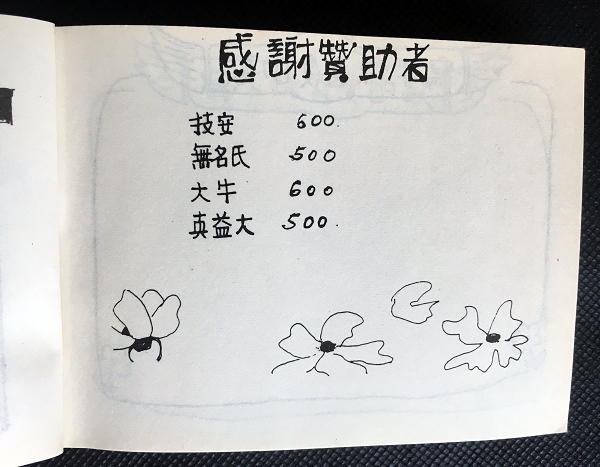 感謝贊助者
技安 600.
無名氏 500
大牛 600
真益大 500.